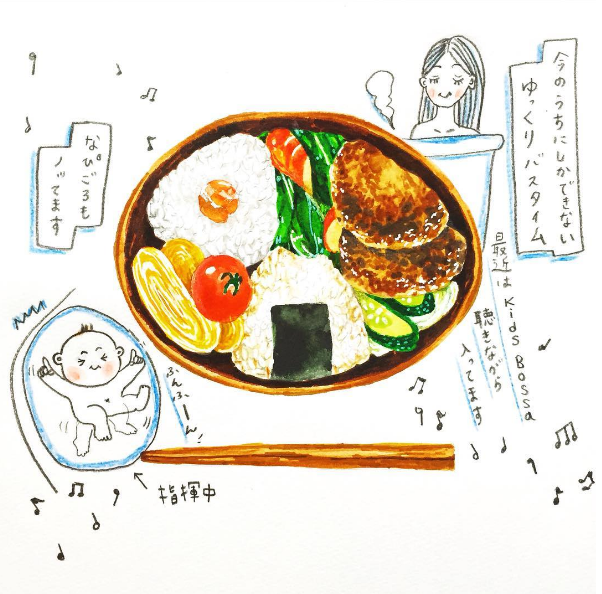 今のうちにしかできない
ゆっくりバスタイム
最近はKids Bossa
聴きながら
入ってます
なぴごろも
ノッてます
ふんふーん♪
指揮中